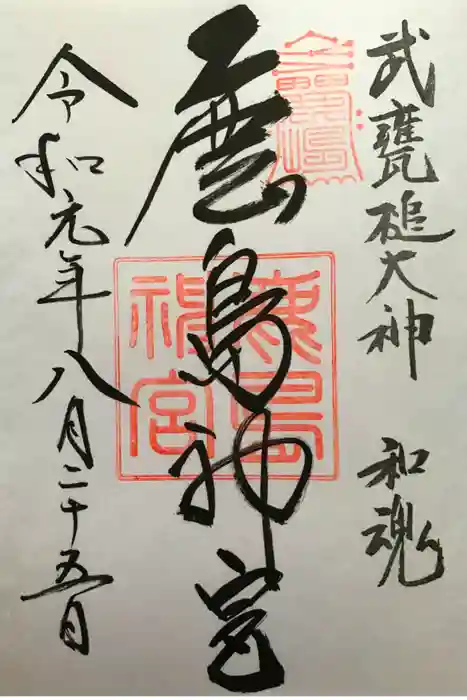 武甕槌大神 和魂
鹿島神宮
鹿島
神宮
令和元年八月二十五日